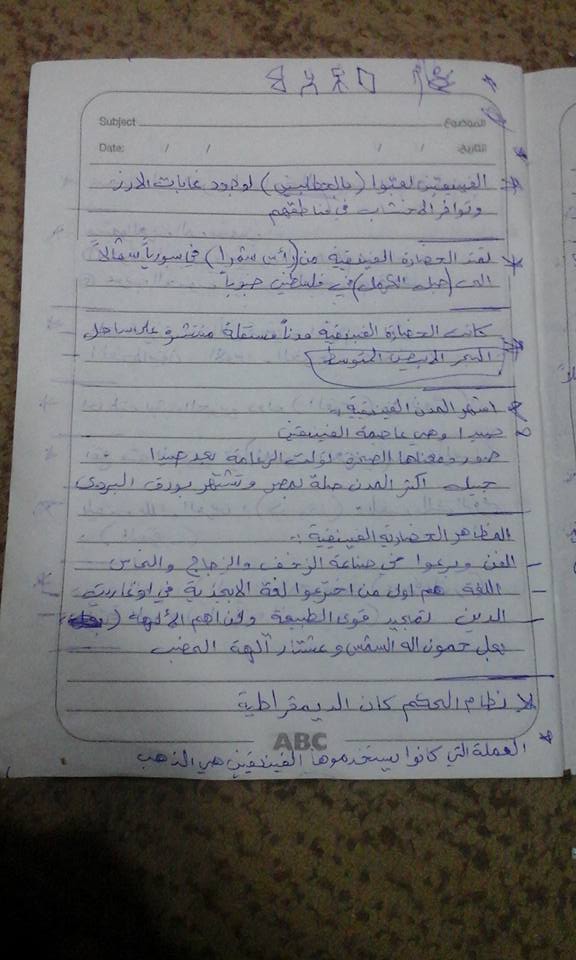 Subject الموضوع
Date: / / / / التاريخ
* الفينيقين لقبوا (بالحطابين) لوجود غابات الارز
وتوافر الاخشاب في مناطقهم
* لقد الحضارة الفينيقية من (رأس شمرا) في سوريا شمالاً
الى (جبل الكرمل) في فلسطين جنوباً
* كانت الحضارة الفينيقية مدناً مستقلة منتشرة على ساحل
البحر الابيض المتوسط
* اشهر المدن الفينيقية :-
صيدا وهي عاصمة الفينيقين
صور ومعناها الصخرة تولت الزعامة بعد صيدا
جبيل اكثر المدن صلة بمصر وتشتهر بورق البردى
المظاهر الحضارية الفينيقية :-
- الفن وبرعوا في صناعة الزخف والزجاج والنحاس
- اللغة هم اول من اخترعوا لغة الابجدية في اوغاريت
- الدين تمجيد قوى الطبيعة ومن اهم الألهة (
بعل حمون اله الشمس وعشتار آلهة الخصب
* نظام الحكم كان الديمقراطية
ABC
* العملة التي كانوا يستخدموها الفينيقين هي الذهب